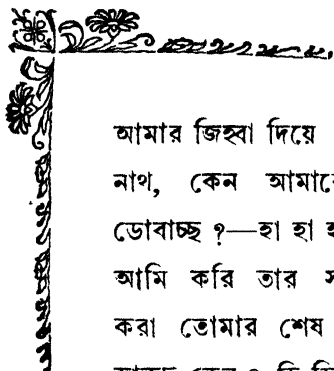 আমার জিহ্বা দিয়ে
নাথ, কেন
ডোবাচ্ছ ?—হা হা
আমি করি তার
করা তোমার শেষ